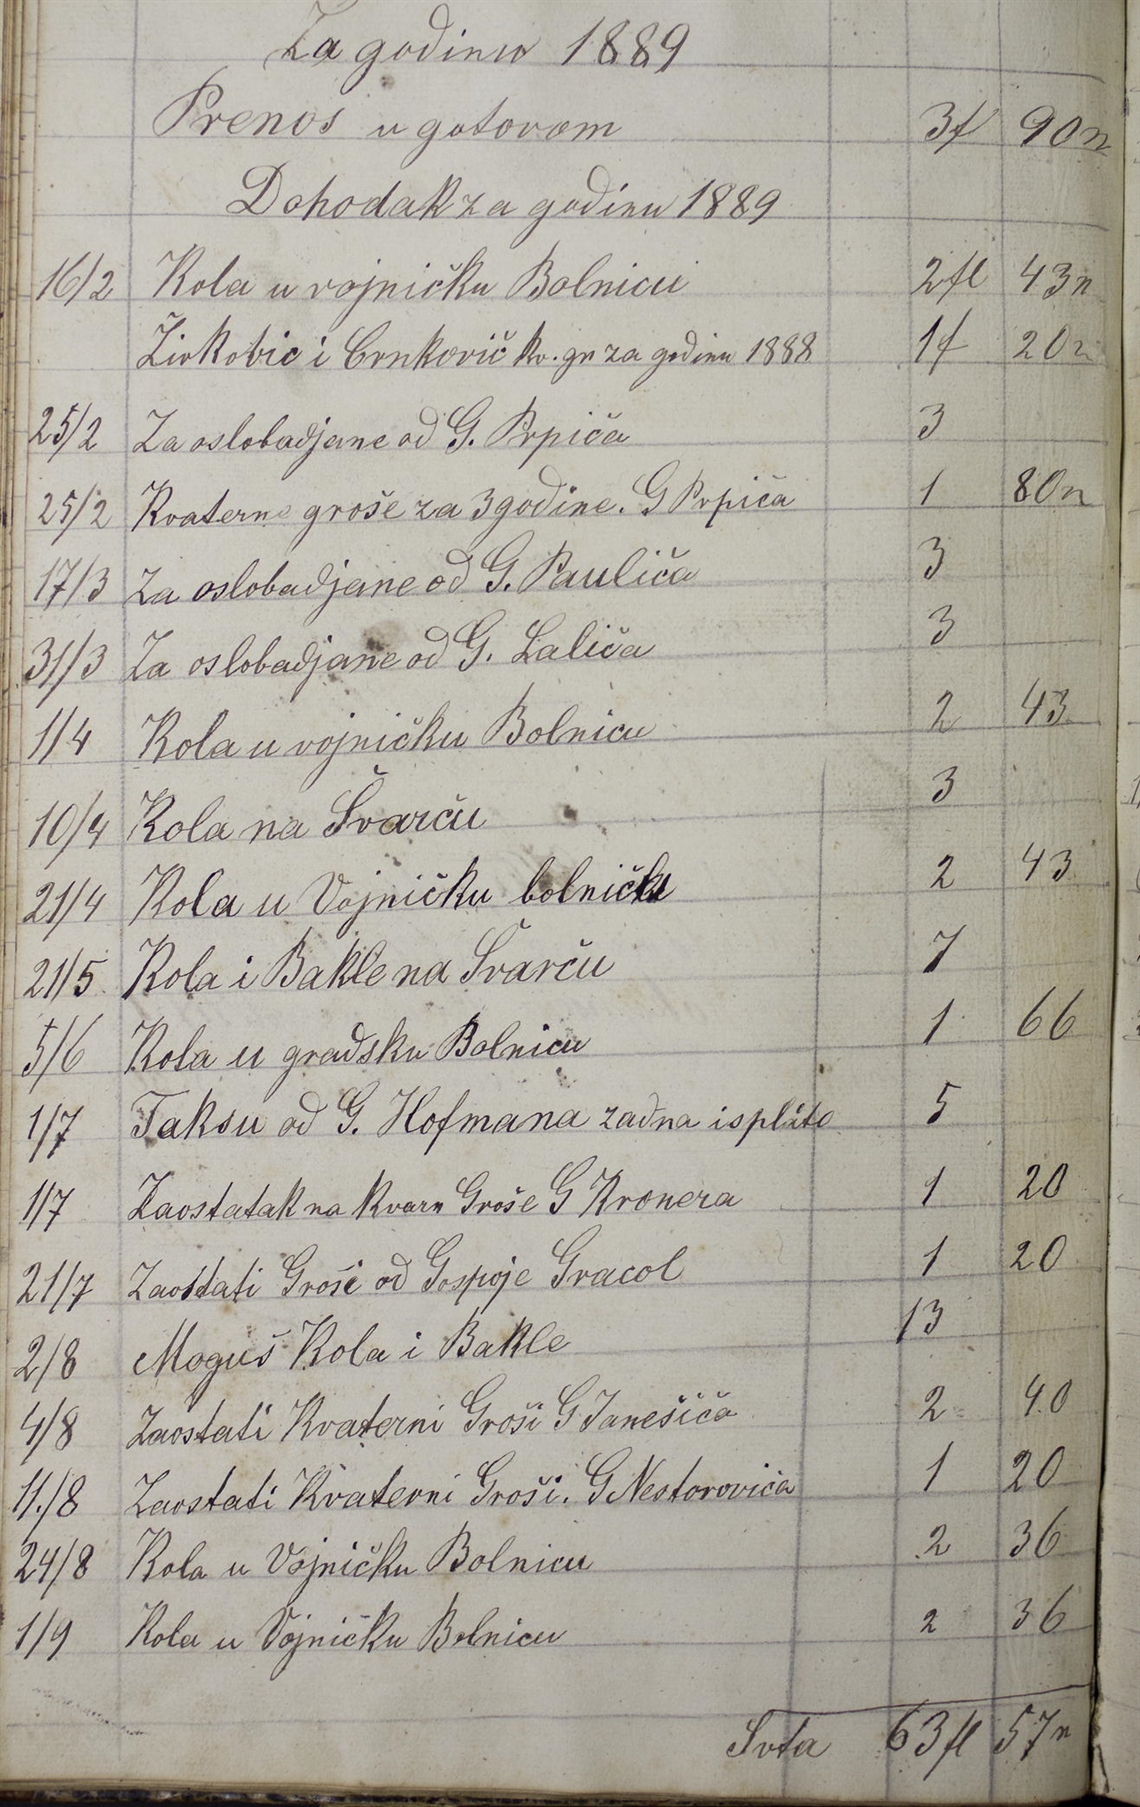 Za godinu 1889
Prenos u gotovom 3f 90n
Dohodak za godinu 1889
16/2 Kola u vojničku Bolnicu 2fl 43n
Zivkovic i Crnkovič kv. gr za godinu 1888 1f 20n
25/2 Za oslobadjane od G. Prpiča 3
25/2 Kvaterne groše za 3 godine. G Prpiča 1 80n
17/3 Za oslobadjane od G. Pauliča 3
31/3 Za oslobadjane od G. Laliča 3
1/4 Kola u vojničku Bolnicu 2 43
10/4 Kola na Švarču 3
21/4 Kola u Vojničku bolničku 2 43
21/5 Kola i Bakle na Švarču 7
5/6 Kola u gradsku Bolnicu 1 66
1/7 Taksu od G. Hofmana zadna isplato 5
1/7 Zaostatak na kvarn Groše G Kronera 1 20
21/7 Zaostati Groši od Gospoje Gracol 1 20
2/8 Moguš Kola i Bakle 13
4/8 Zaostati Kvaterni Groši G Janešiča 2 40
11./8 Zaostati Kvaterni Groši. G Nestoroviča 1 20
24/8 Kola u Vojničku Bolnicu 2 36
1/9 Kola u Vojničku Bolnicu 2 36
Svta 63fl 57n